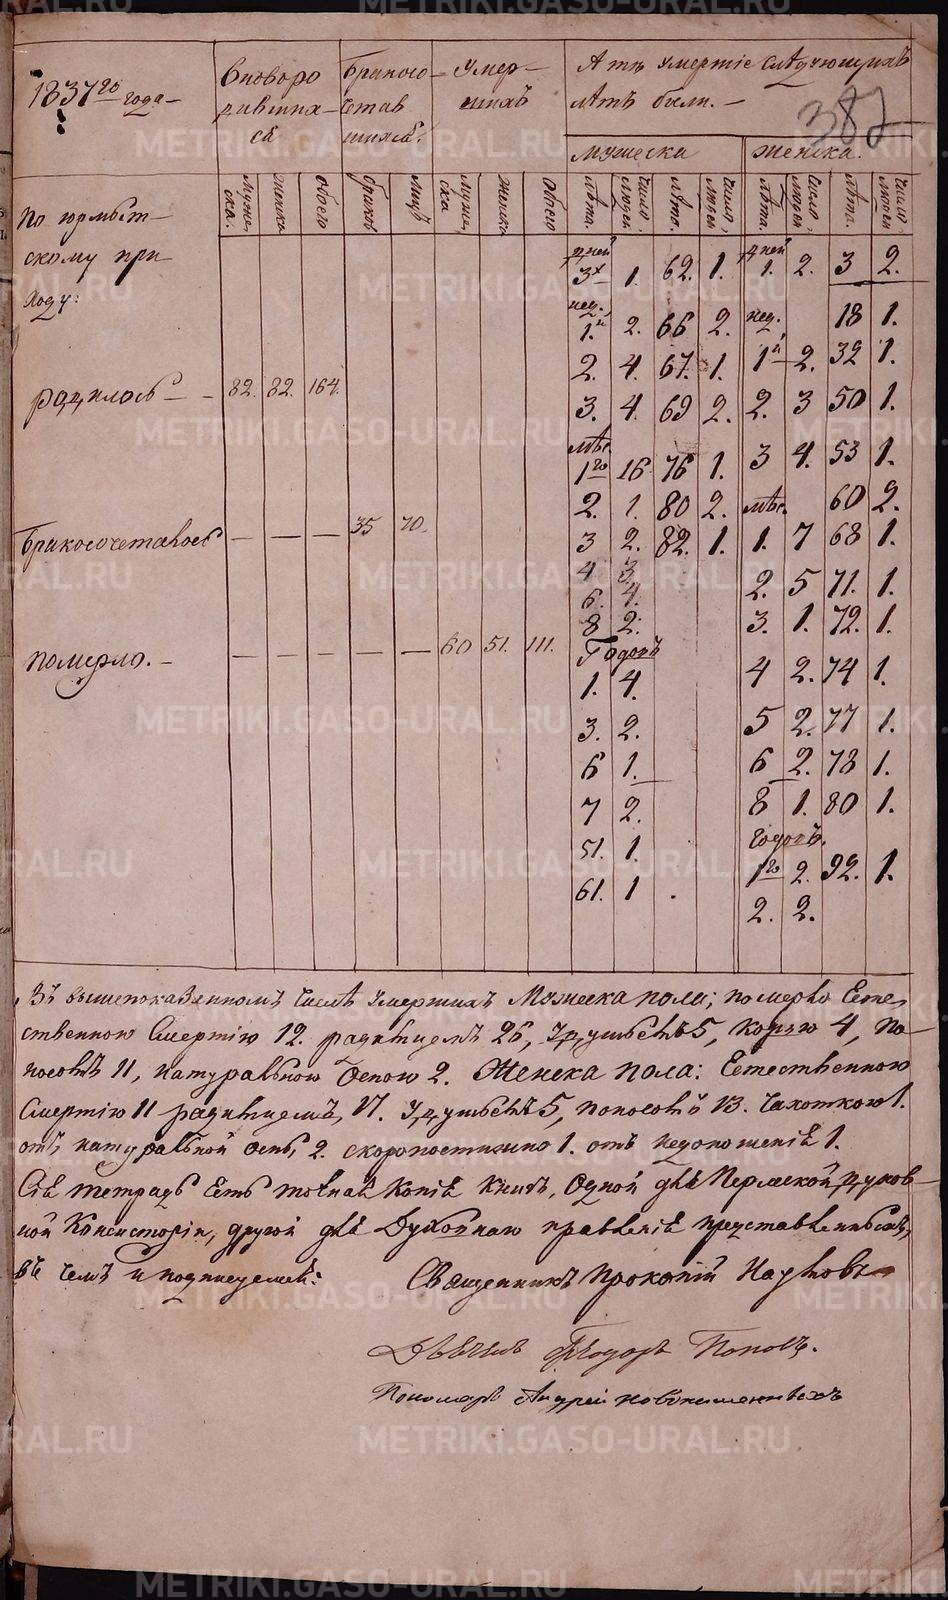 1837го года—
Новоро
дивших
ся
Бракосо
четав
шихся.
Умер—
шихъ
А тѣ умертіе слѣдующихъ
лѣтъ были.—
382
мужеска
женска.
Муже,
ска.
Женска
обоего
браковъ
лицъ
Муже,
ска
Женска
Обоего
лѣта.
число,
людей
лѣта.
число,
людей
лѣта.
число
людей
лѣта.
число,
людей
По юрмыт—
скому при
ходу:
родилось — — 82. 82. 164.
Бракосочеталось — — — 35 70.
померло. — — — — — — 60 51. 111.
дней
3х 1. 62. 1.
нед.
1.й 2. 66 2.
2. 4. 67. 1.
3. 4. 69 2.
мѣс.
1го 16 76 1.
2. 1. 80 2.
3 2. 82. 1.
4 3.
6. 4.
8 2.
Годовъ
1. 4.
3. 2.
6 1.
7 2.
51. 1.
61. 1 .
дней
1. 2. 3 2.
нед. 18 1.
1й 2. 32 1.
2. 3 50 1.
3 4. 53 1.
мѣс. 60 2.
1. 7 68 1.
2. 5 71. 1.
3. 1. 72. 1.
4 2. 74 1.
5 2. 77 1.
6 2. 78 1.
8 1. 80 1.
годовъ.
1го 2. 92. 1.
2. 2.
Въ вышепоказанномъ числѣ умершихъ Мужеска пола; померло Есте,
ственною Смертію 12. родимцемъ 26, удушьемъ 5, корью 4, По
носомъ 11, натуральною Оспою 2. Женска пола: Естественною
Смертію 11 родимцемъ, 17. Удушьемъ 5, поносомъ 13. Чахоткою 1.
отъ натуральной оспы, 2. скоропостижно 1. отъ недоношенія 1.
Сія тетрадь Есть точная Копія Книгъ, Одной для Пермской Духов
ной Консисторіи, другой для Духовнаго правленія представленныхъ,
въ чемъ и подписуемся:
Священникъ Прокопій Наумовъ
Дьячекъ Ѳеодоръ Поповъ.
Пономарь Андрей Новокишенныхъ
METRIKI.GASO-URAL.RU